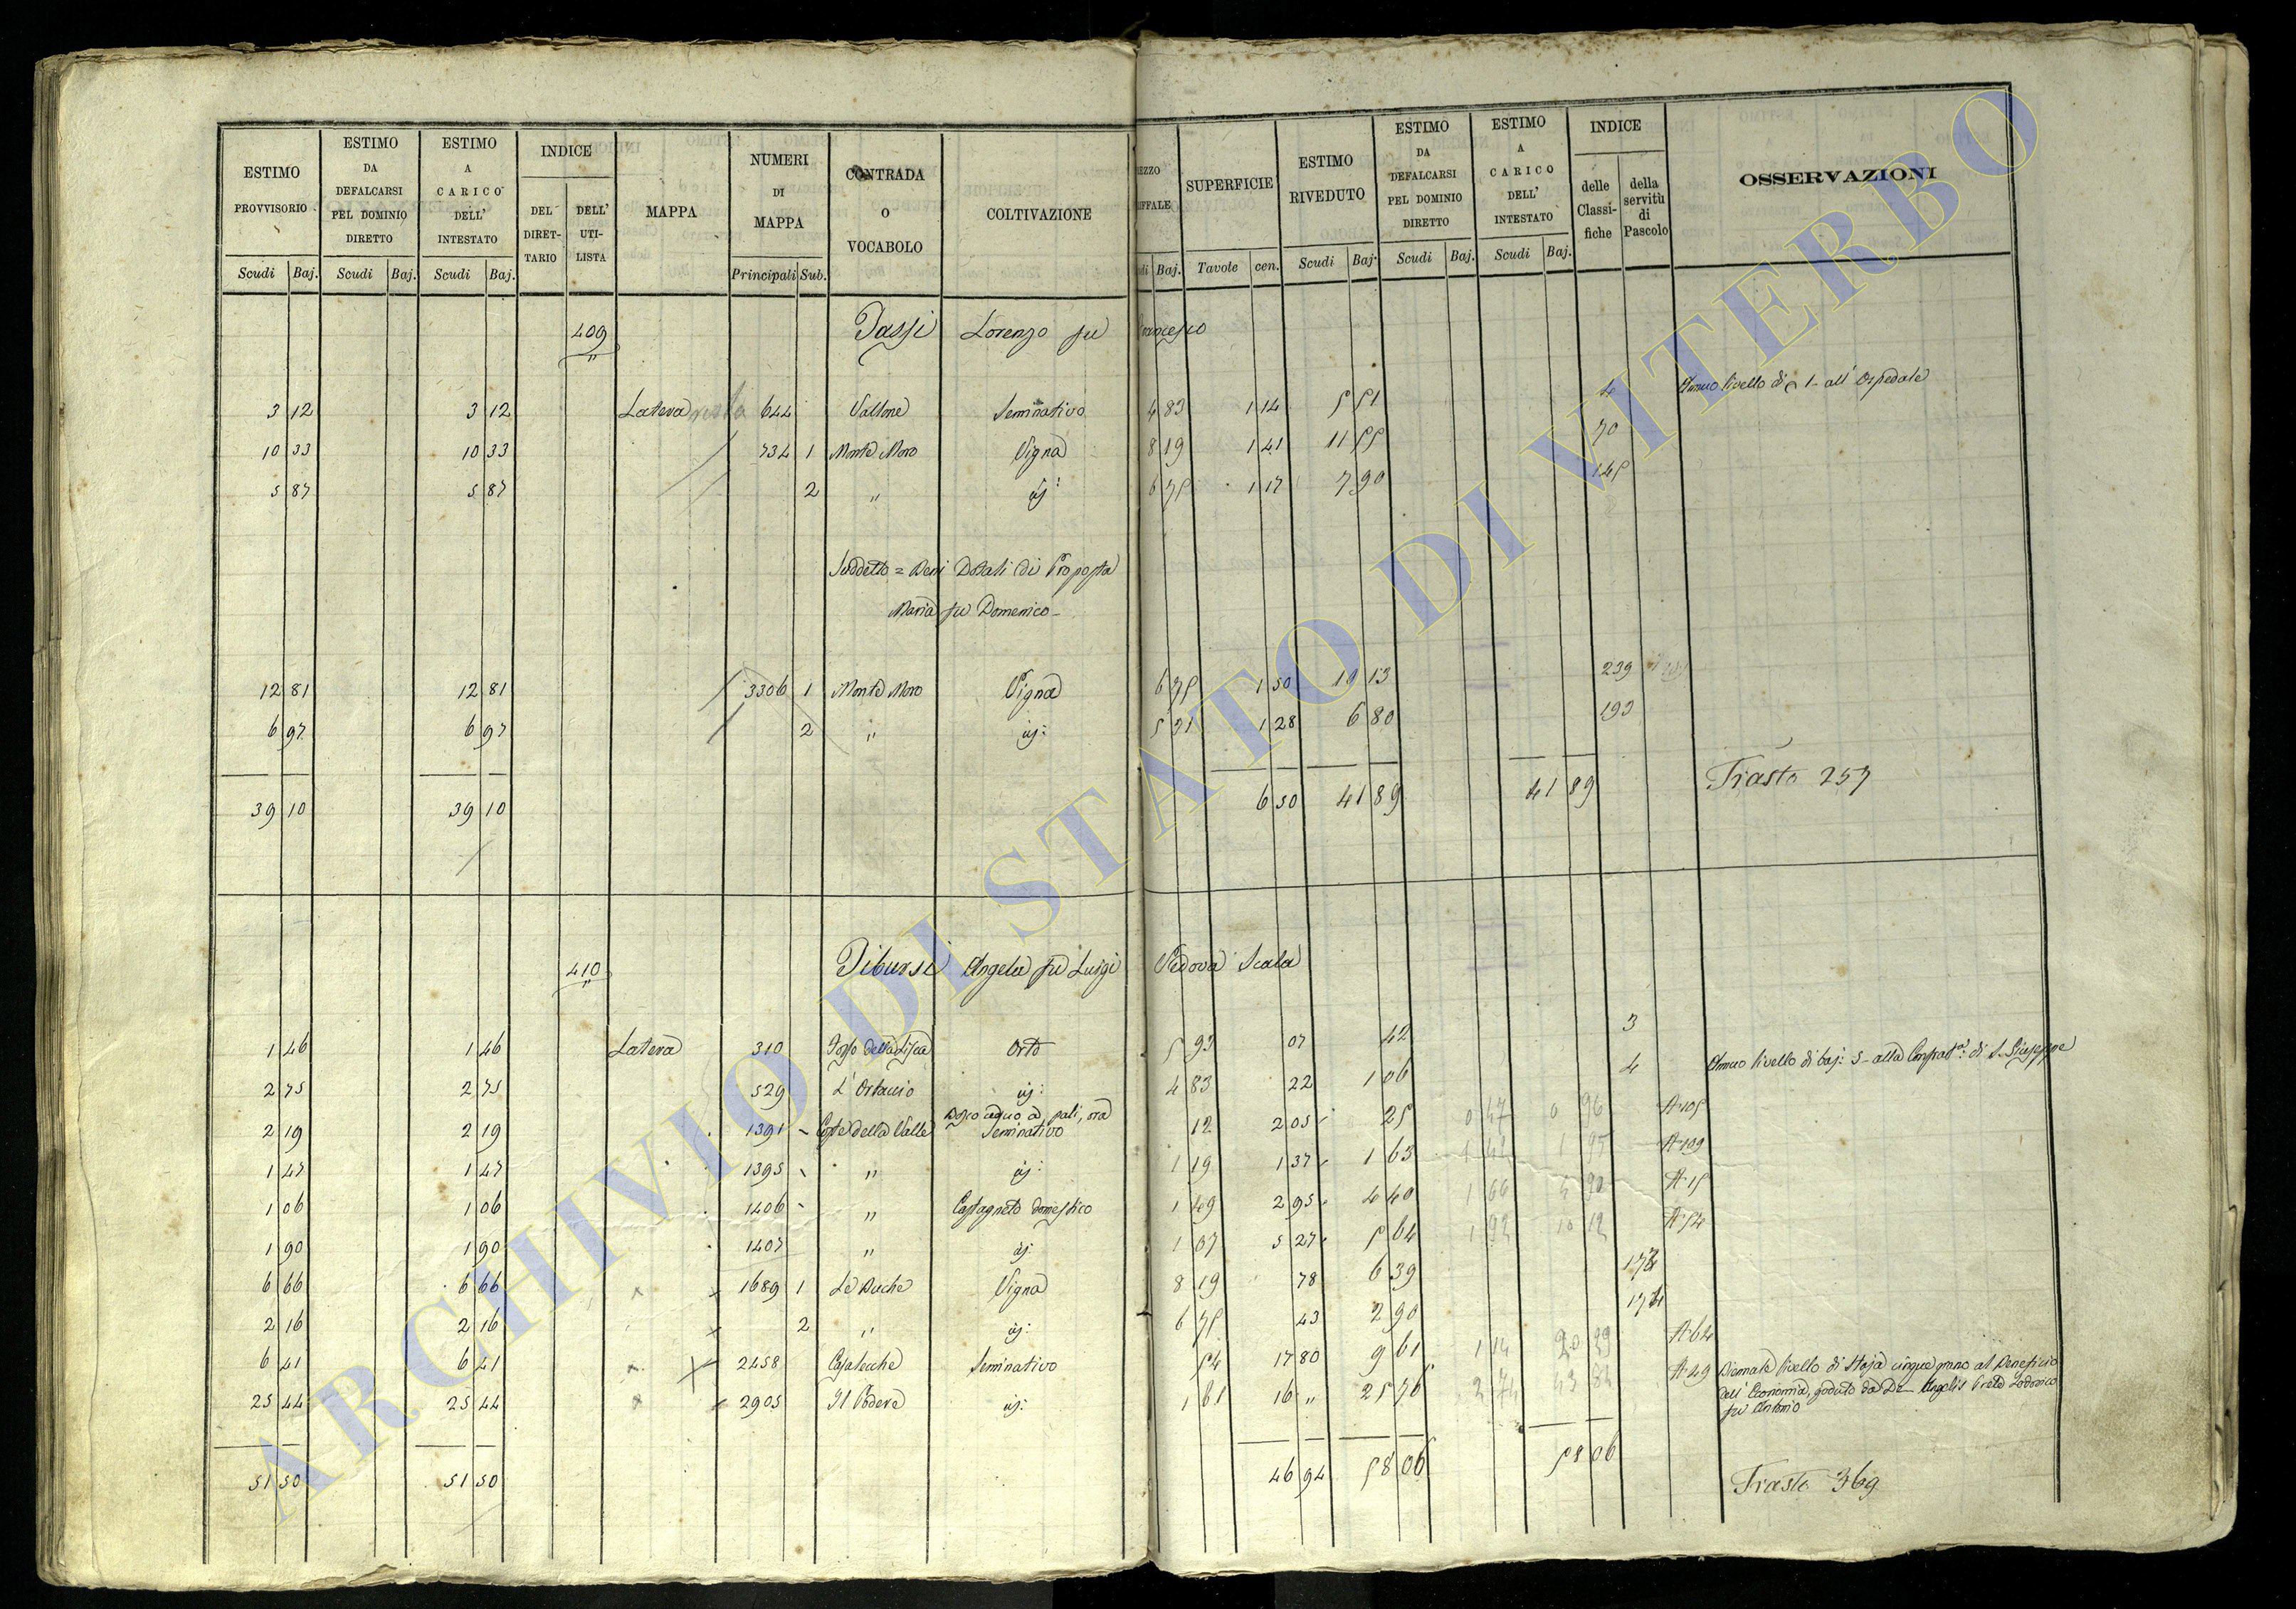 ESTIMO PROVVISORIO Scudi Baj. | ESTIMO DA DEFALCARSI PEL DOMINIO DIRETTO Scudi Baj. | ESTIMO A CARICO DELL' INTESTATO Scudi Baj. | INDICE DEL DIRETTARIO DELL' UTILISTA | MAPPA | NUMERI DI MAPPA Principali Sub. | CONTRADA O VOCABOLO | COLTIVAZIONE | Baj. | SUPERFICIE Tavole cen. | ESTIMO RIVEDUTO Scudi Baj. | ESTIMO DA DEFALCARSI PEL DOMINIO DIRETTO Scudi Baj. | ESTIMO A CARICO DELL' INTESTATO Scudi Baj. | INDICE delle Classifiche della servitù di Pascolo | OSSERVAZIONI
409 Tassi Lorenzo fu Francesco
3 12 3 12 Latera 644 Vallone Seminativo 4 83 1 14 5 51 4 Annuo livello di 1 - all' Ospedale
10 33 10 33 734 1 Monte Moro Vigna 8 19 1 41 11 55 70
5 87 5 87 2 " id: 6 75 1 17 7 90 145
Suddetto = Beni Dotali di Proposta
Maria fu Domenico -
12 81 12 81 3306 1 Monte Moro Vigna 6 75 1 50 10 13 239
6 97 6 97 2 " id: 5 31 1 28 6 80 193
39 10 39 10 6 50 41 89 41 89 Trasto 257
410 Tibursi Angela fu Luigi Vedova Scala
1 46 1 46 Latera 310 Fosso della Lisca Orto 5 93 07 42 3
2 75 2 75 529 L' Ortaccio id: 4 83 22 1 06 4 Annuo livello di baj: 5 - alla Confrat.a di S. Giuseppe
2 19 2 19 1391 Coste della Valle Bosco ceduo a pali, ora Seminativo 12 2 05 25 0 47 0 96 A.105
1 47 1 47 1395 " id: 1 19 1 37 1 63 1 95 A.109
1 06 1 06 1406 " Castagneto domestico 1 49 2 95 4 40 1 66 A.15
1 90 1 90 1407 " id: 1 07 5 27 5 64 1 92 10 12 A.54
6 66 6 66 1689 1 Le Buche Vigna 8 19 78 6 39
2 16 2 16 2 " id: 6 75 43 2 90
6 41 6 41 2458 Casalecche Seminativo 54 17 80 9 61 1 14 A.64
25 44 25 44 2905 Il Podere id: 1 61 16 " 25 76 2 74 A.29 Biennale livello di Staja cinque grano al Beneficio
dell' Economia, goduto da De Angelis Prete Lodovico
fu Antonio
51 50 51 50 46 94 58 06 58 06 Trasto 369
ARCHIVIO DI STATO DI VITERBO